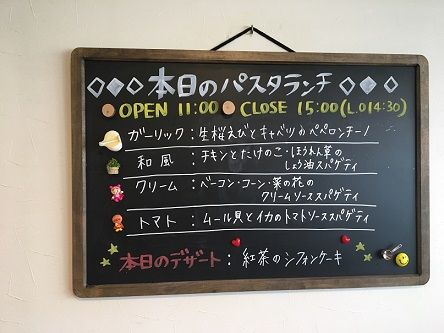 ◇◇◇本日のパスタランチ◇◇◇
OPEN 11:00 CLOSE 15:00(L.O14:30)
ガーリック:生桜えびとキャベツのペペロンチーノ
和風:チキンとたけのこ・ほうれん草の
しょう油スパゲティ
クリーム:ベーコン・コーン・菜の花の
クリームソーススパゲティ
トマト:ムール貝とイカのトマトソーススパゲティ
本日のデザート:紅茶のシフォンケーキ